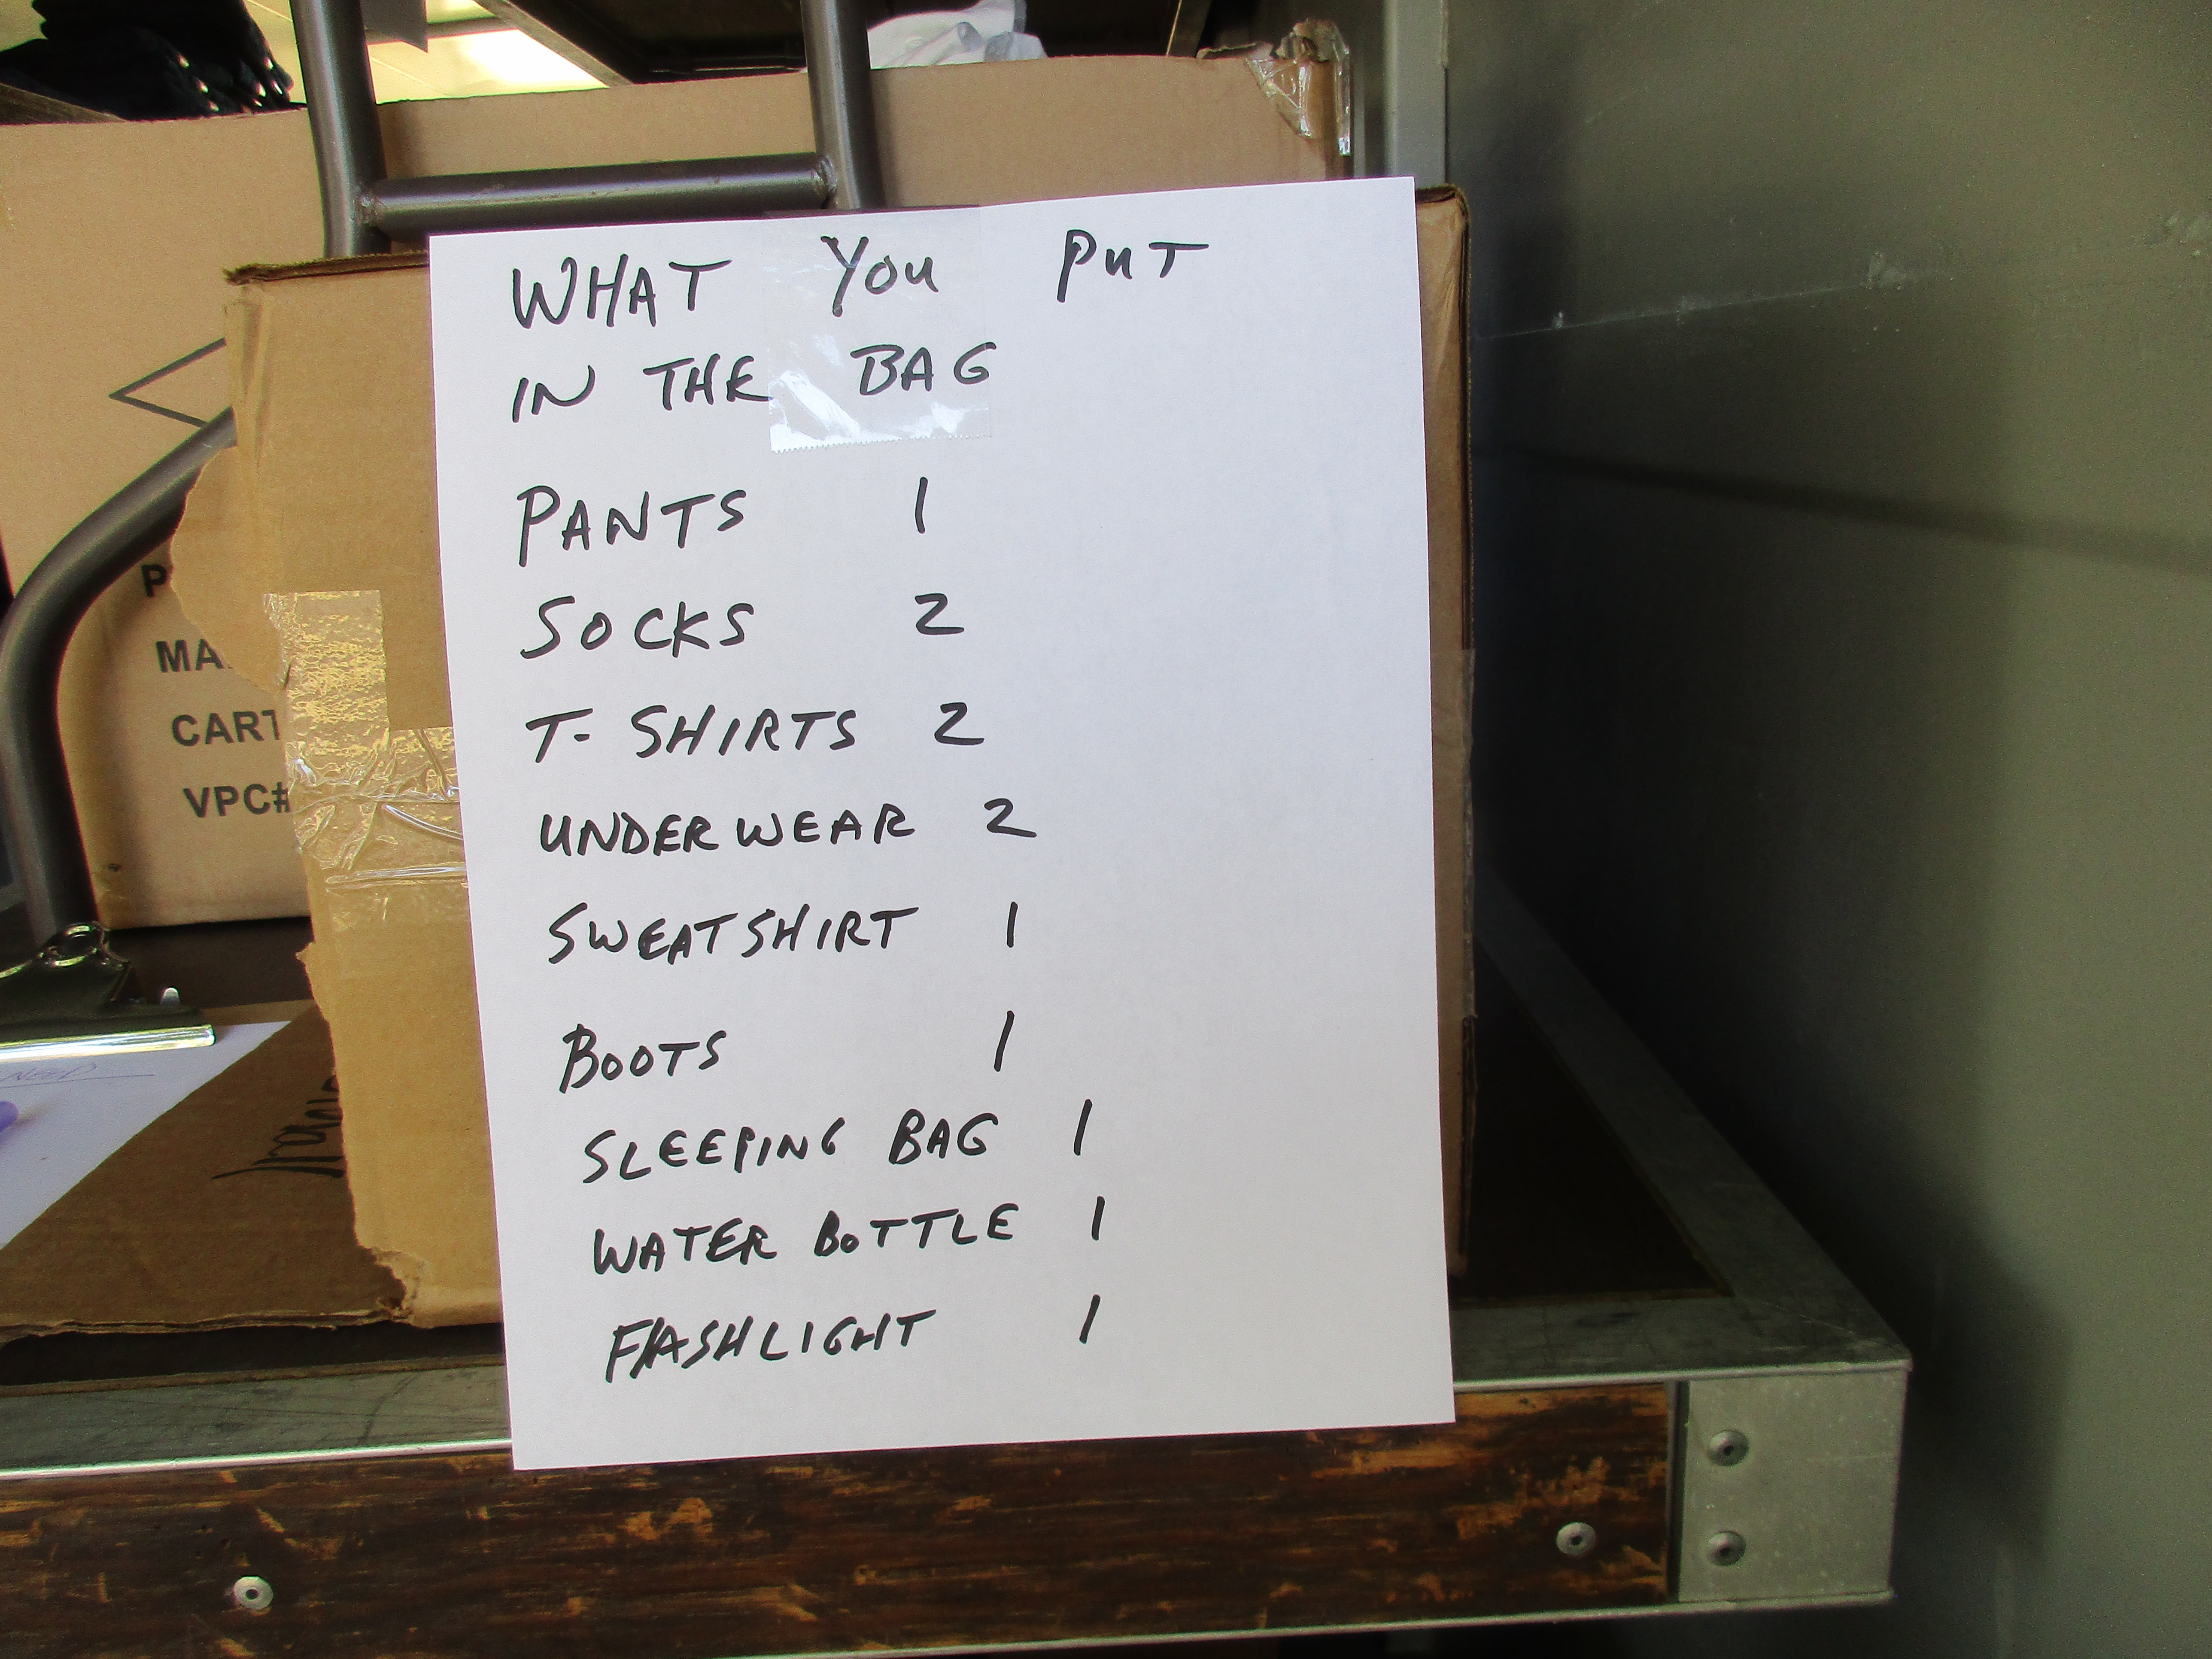 WHAT YOU PUT
IN THE BAG
PANTS 1
SOCKS 2
T-SHIRTS 2
UNDERWEAR 2
SWEATSHIRT 1
BOOTS 1
SLEEPING BAG 1
WATER BOTTLE 1
FLASHLIGHT 1
P
MA
CART
VPC#
NEED